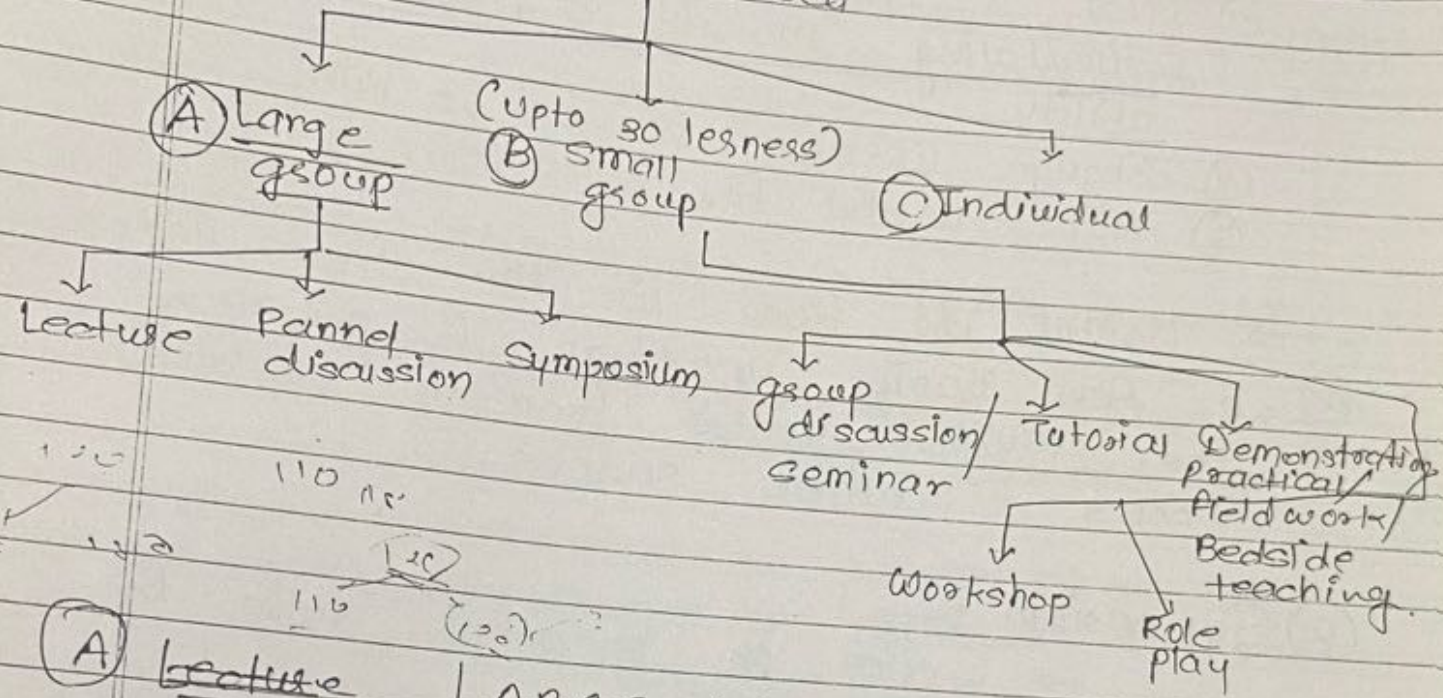 A Large
group
(upto 30 lesness)
B small
group
C Individual
Lecture
Pannel
discussion
Symposium
group
discussion/
Seminar
Tutorial
Demonstration
Practical/
field work/
Bedside
teaching.
Workshop
Role
Play
110
110
A Lecture